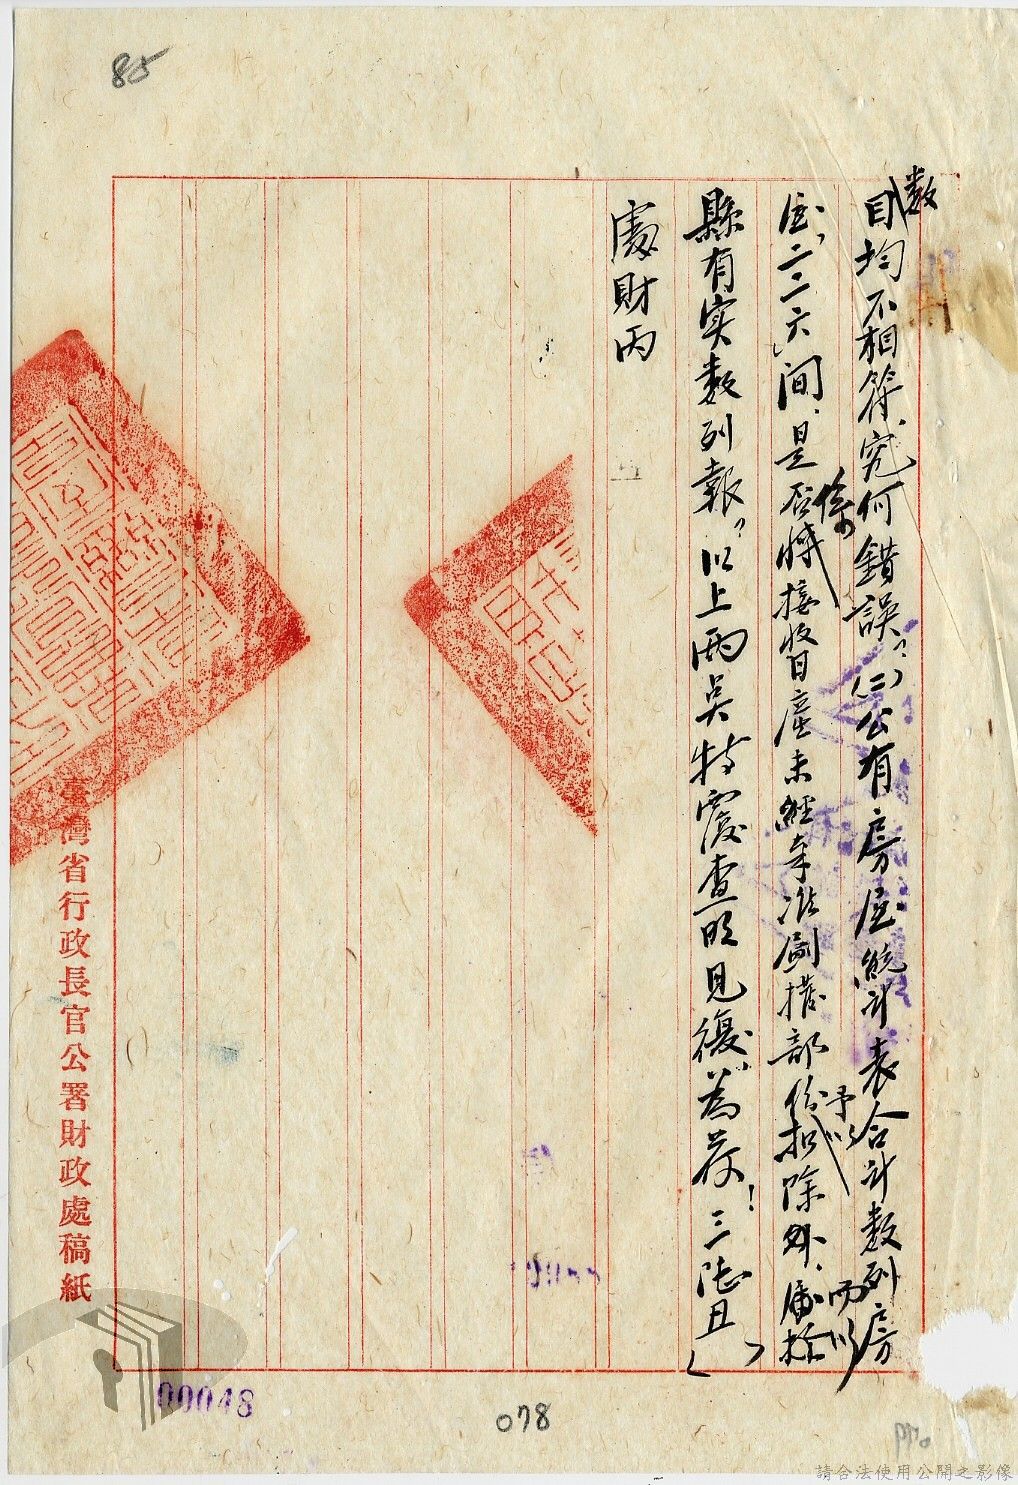 85
數目均不相符、究何錯誤?(二)公有房屋統計表合計數列房
屋二二六间、是否係將接收日產未經奉准劃撥部份予以扣除外、而以屬於
縣有实數列報?以上兩点特電查明見復為荷!三陸丑
處財丙
臺灣省行政長官公署財政處稿紙
00048
078
請合法使用公開之影像